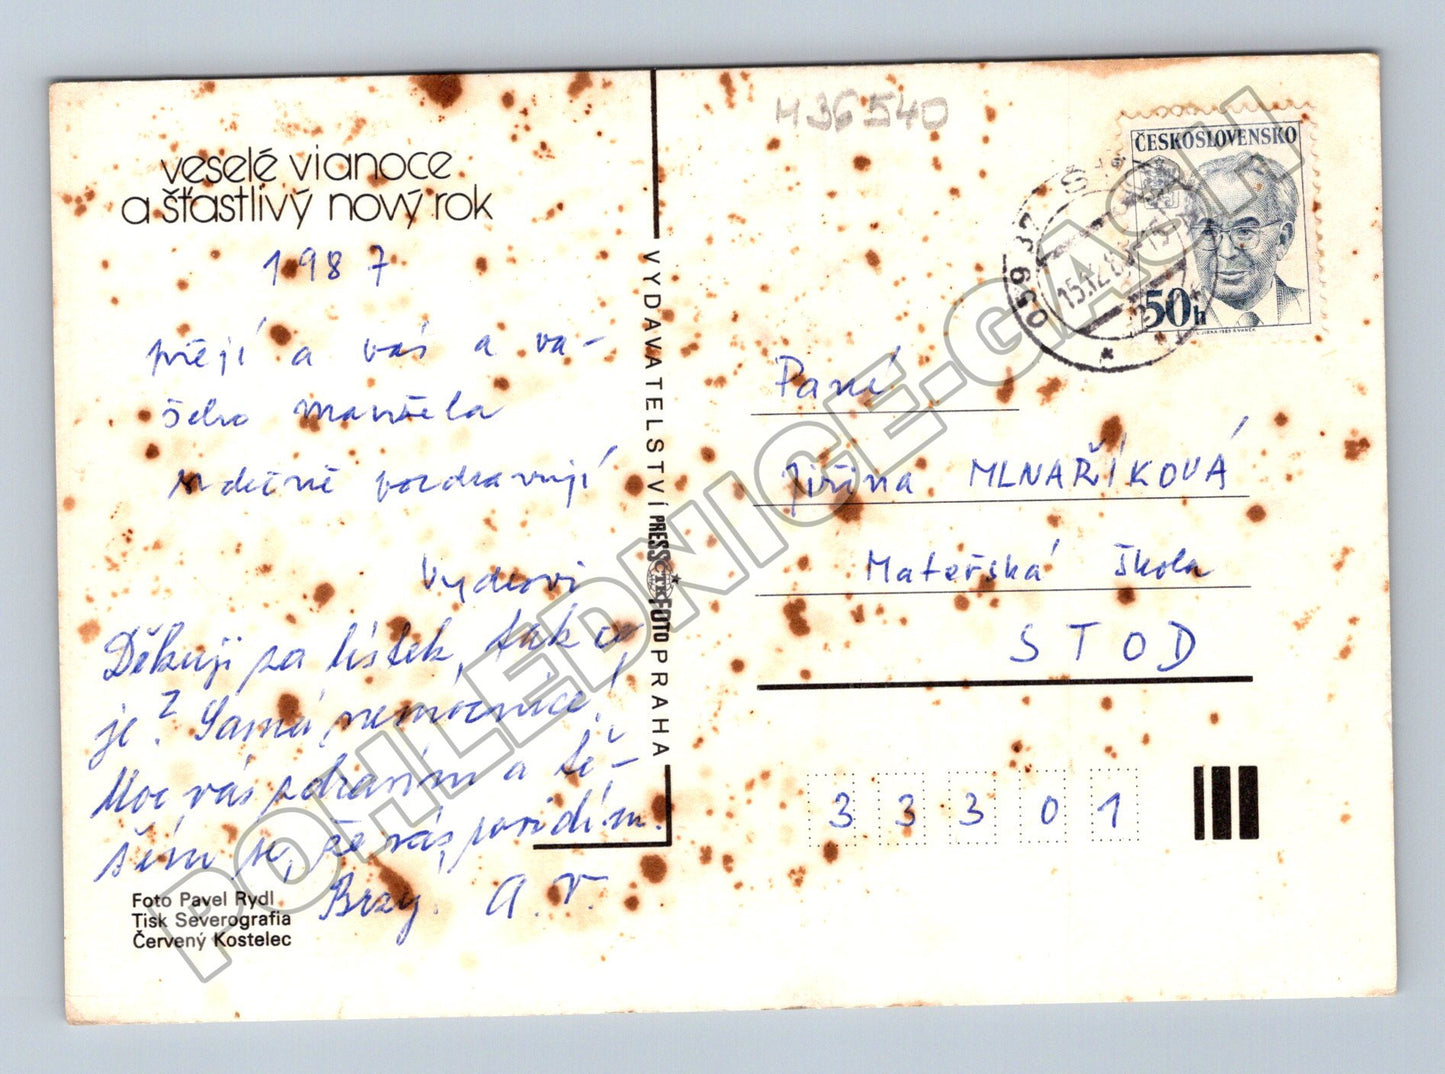 veselé vianoce
a šťastlivý nový rok
1987
přejí a vás a va-
šeho manžela
srdečně pozdravují
Vydrovi
Děkuji za lístek, tak co
je? Samá nemocnice!
Moc vás zdravím a tě-
ším se, že vás, uvidím.
Brzy. A. V.
Foto Pavel Rydl
Tisk Severografia
Červený Kostelec
VYDAVATELSTVÍ PRESSFOTO PRAHA
ČTK
M36540
ČESKOSLOVENSKO
50h
059 37
15.12.86
Paní
Jiřina MLNAŘÍKOVÁ
Mateřská škola
STOD
33301
POHLEDNICE-GASH